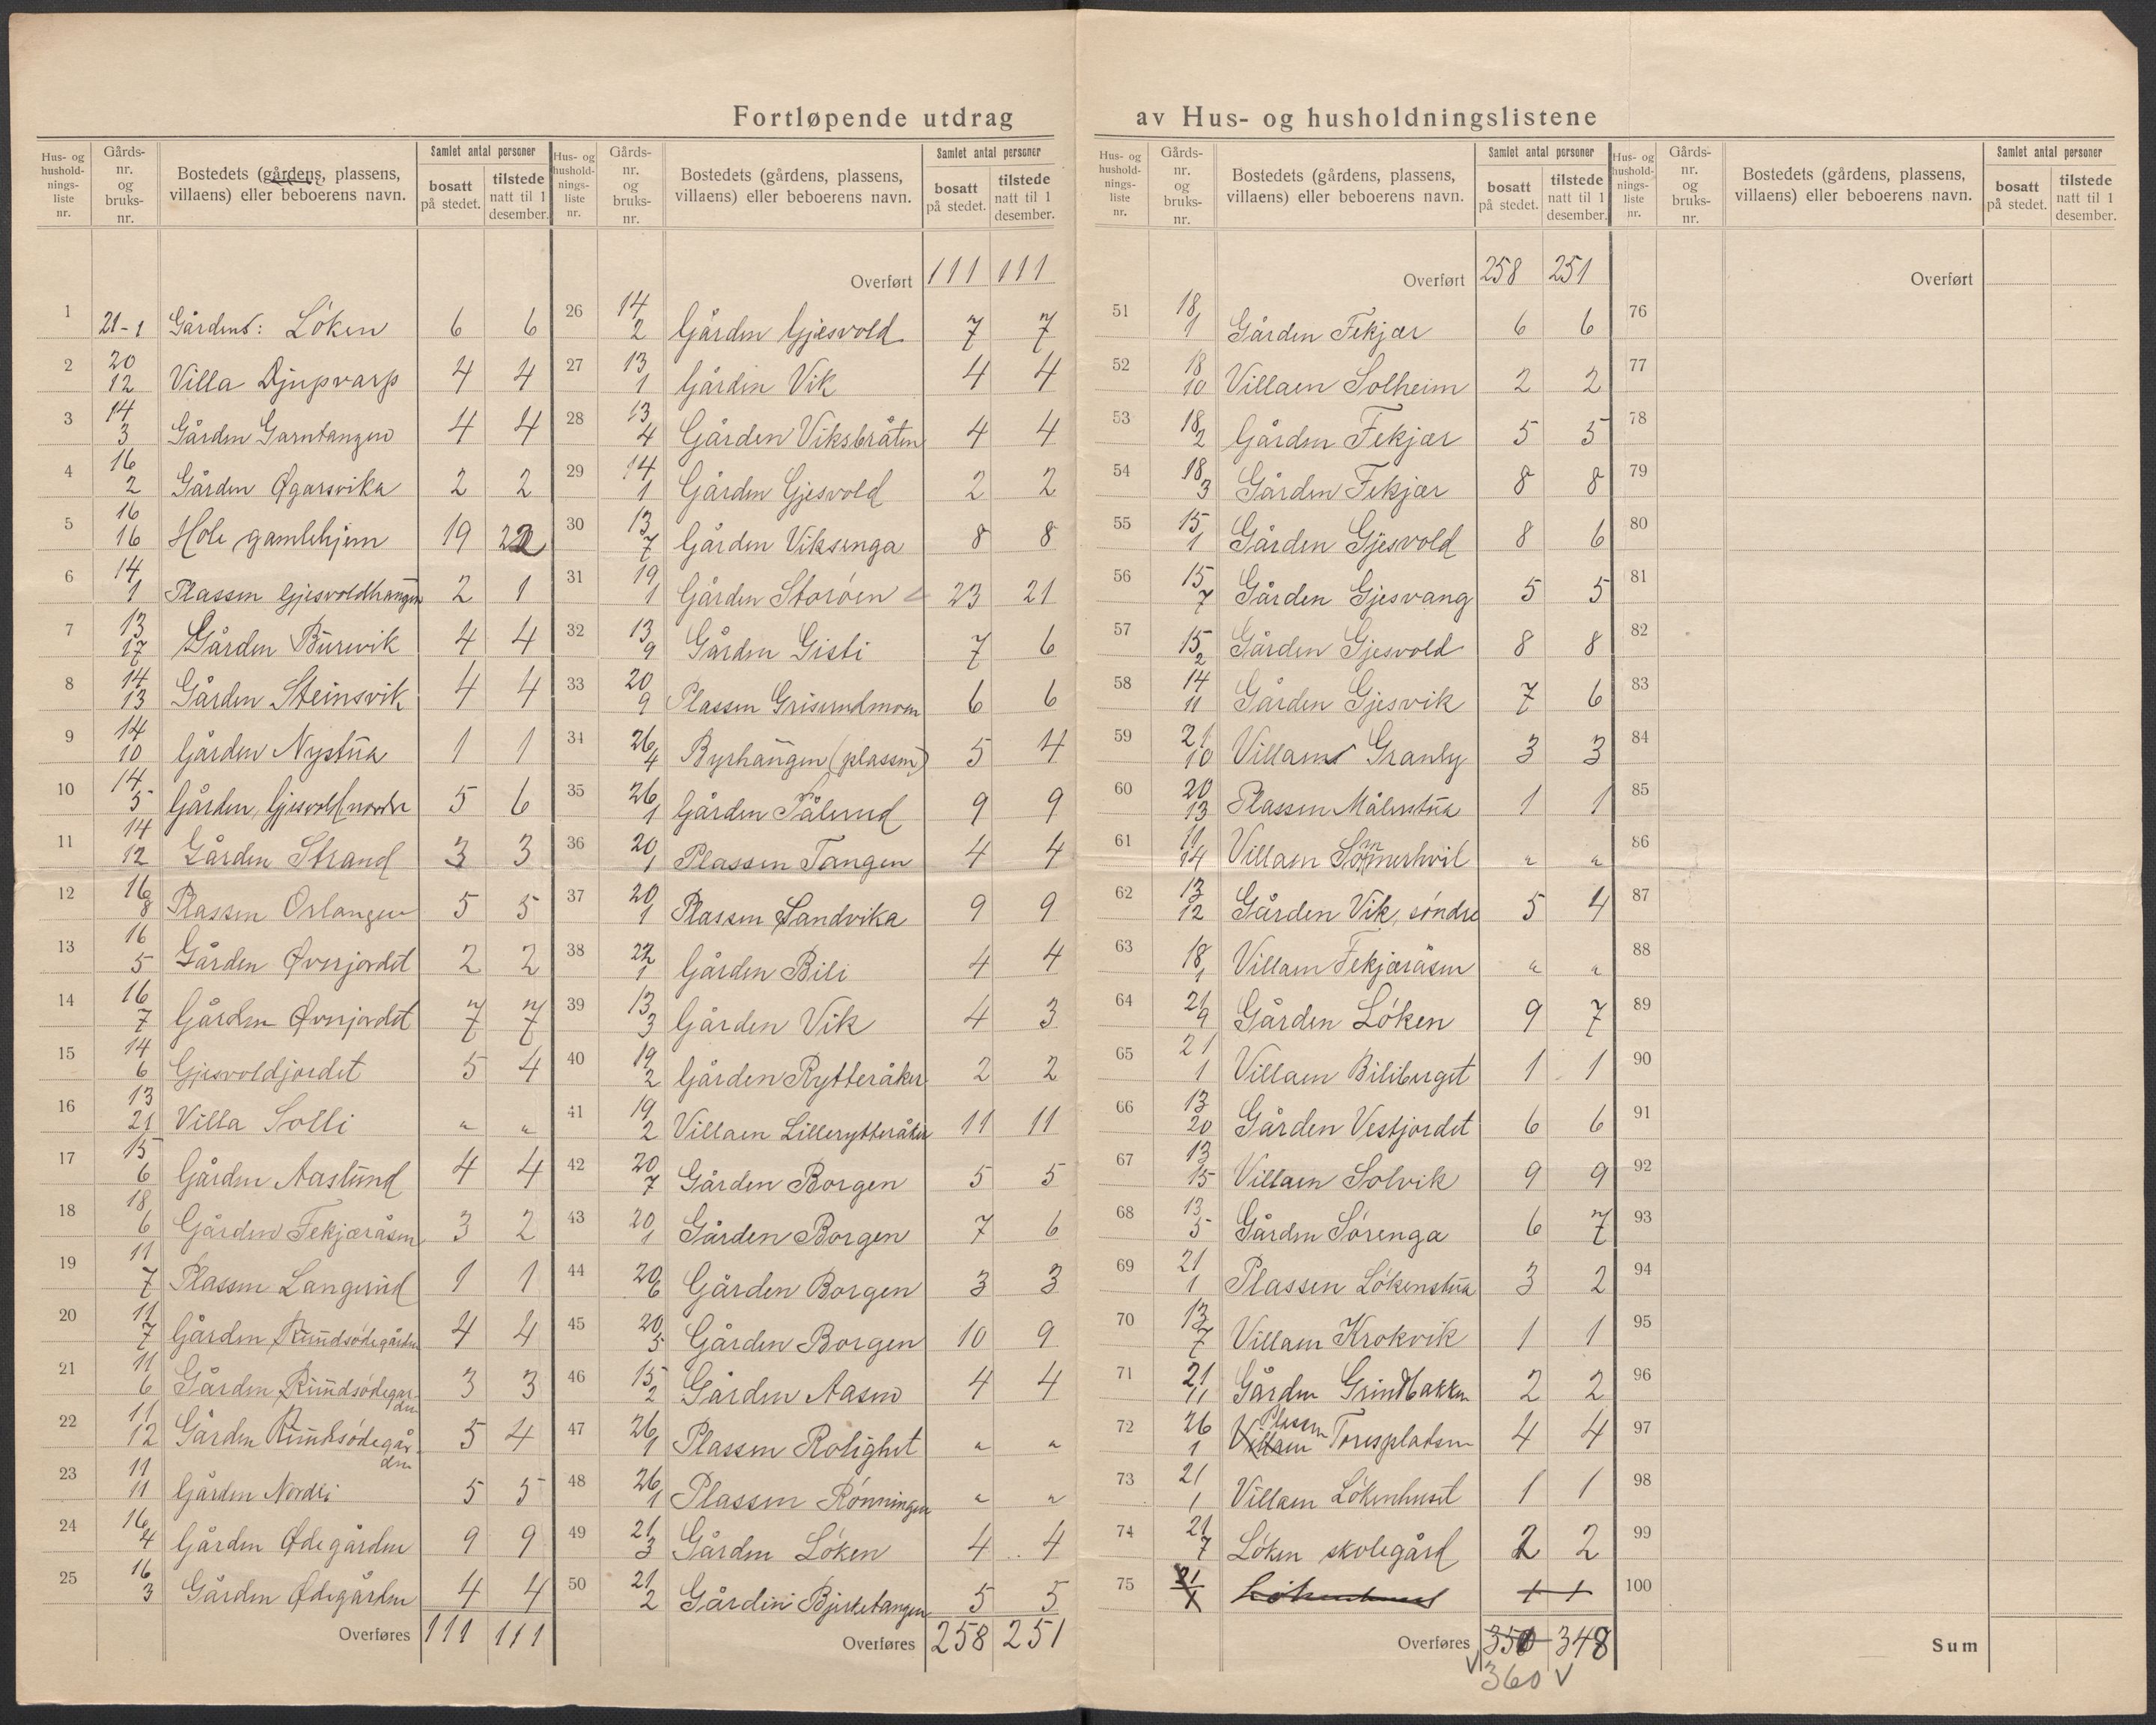 Fortløpende utdrag av Hus- og husholdningslistene
Hus- og hushold-nings-liste nr. | Gårds-nr. og bruks-nr. | Bostedets (gårdens, plassens, villaens) eller beboerens navn. | Samlet antal personer | bosatt på stedet. | tilstede natt til 1 desember.
1 | 21-1 | Gårdens: Løken | 6 | 6
2 | 20 12 | Villa Djupvarp | 4 | 4
3 | 14 3 | Gården Garntangen | 4 | 4
4 | 16 2 | Gården Øgarsvika | 2 | 2
5 | 16 16 | Hole gamlehjem | 19 | 22
6 | 14 1 | Plassen Gjesvoldhaugen | 2 | 1
7 | 13 17 | Gården Burevik | 4 | 4
8 | 14 13 | Gården Steinsvik | 4 | 4
9 | 14 10 | Gården Nystua | 1 | 1
10 | 14 5 | Gården Gjesvold nordre | 5 | 6
11 | 14 12 | Gården Strand | 3 | 3
12 | 16 8 | Plassen Orlangen | 5 | 5
13 | 16 5 | Gården Øverjordet | 2 | 2
14 | 16 7 | Gården Øverjordet | 7 | 7
15 | 14 6 | Gjesvoldjordet | 5 | 4
16 | 13 21 | Villa Solli | " | "
17 | 15 6 | Gården Aaslund | 4 | 4
18 | 18 6 | Gården Fekjæråsen | 3 | 2
19 | 11 7 | Plassen Langerud | 1 | 1
20 | 11 7 | Gården Rundsødegården | 4 | 4
21 | 11 6 | Gården Rundsødegarden | 3 | 3
22 | 11 12 | Gården Rundsødegården | 5 | 4
23 | 11 11 | Gården Nordli | 5 | 5
24 | 16 4 | Gården Ødegården | 9 | 9
25 | 16 3 | Gården Ødegården | 4 | 4
Overføres 111 | 111
Hus- og hushold-nings-liste nr. | Gårds-nr. og bruks-nr. | Bostedets (gårdens, plassens, villaens) eller beboerens navn. | Samlet antal personer | bosatt på stedet. | tilstede natt til 1 desember.
Overført 111 | 111
26 | 14 2 | Gården Gjesvold | 7 | 7
27 | 13 1 | Gården Vik | 4 | 4
28 | 13 4 | Gården Viksbråten | 4 | 4
29 | 14 1 | Gården Gjesvold | 2 | 2
30 | 13 7 | Gården Viksenga | 8 | 8
31 | 19 1 | Gården Storøen | 23 | 21
32 | 13 9 | Gården Gisti | 7 | 6
33 | 20 9 | Plassen Griserudmoen | 6 | 6
34 | 26 4 | Byrhaugen (plassen) | 5 | 4
35 | 26 1 | Gården Pålerud | 9 | 9
36 | 20 1 | Plassen Tangen | 4 | 4
37 | 20 1 | Plassen Sandvika | 9 | 9
38 | 22 1 | Gården Bili | 4 | 4
39 | 13 3 | Gården Vik | 4 | 3
40 | 19 2 | Gården Rytteråker | 2 | 2
41 | 19 2 | Villaen Lillerytteråker | 11 | 11
42 | 20 7 | Gården Borgen | 5 | 5
43 | 20 1 | Gården Borgen | 7 | 6
44 | 20 6 | Gården Borgen | 3 | 3
45 | 20 5 | Gården Borgen | 10 | 9
46 | 15 2 | Gården Aasen | 4 | 4
47 | 26 1 | Plassen Rolighet | " | "
48 | 26 1 | Plassen Rønningen | " | "
49 | 21 3 | Gården Løken | 4 | 4
50 | 21 2 | Gården Bjerketangen | 5 | 5
Overføres 258 | 251
Hus- og hushold-nings-liste nr. | Gårds-nr. og bruks-nr. | Bostedets (gårdens, plassens, villaens) eller beboerens navn. | Samlet antal personer | bosatt på stedet. | tilstede natt til 1 desember.
Overført 258 | 251
51 | 18 1 | Gården Fekjær | 6 | 6
52 | 18 10 | Villaen Solheim | 2 | 2
53 | 18 2 | Gården Fekjær | 5 | 5
54 | 18 3 | Gården Fekjær | 8 | 8
55 | 15 1 | Gården Gjesvold | 8 | 6
56 | 15 7 | Gården Gjesvang | 5 | 5
57 | 15 2 | Gården Gjesvold | 8 | 8
58 | 14 11 | Gården Gjesvik | 7 | 6
59 | 21 10 | Villaens Granly | 3 | 3
60 | 20 13 | Plassen Målerstua | 1 | 1
61 | 11 14 | Villaen Sommerhvil | " | "
62 | 13 12 | Gården Vik, søndre | 5 | 4
63 | 18 1 | Villaen Fekjæråsen | " | "
64 | 21 9 | Gården Løken | 9 | 7
65 | 21 1 | Villaen Biliberget | 1 | 1
66 | 13 20 | Gården Vestjordet | 6 | 6
67 | 13 15 | Villaen Solvik | 9 | 9
68 | 13 5 | Gården Sørenga | 6 | 7
69 | 21 1 | Plassen Løkenstua | 3 | 2
70 | 13 7 | Villaen Krokvik | 1 | 1
71 | 21 11 | Gården Grindbakken | 2 | 2
72 | 26 1 | Villaen Plassen Torespladsen | 4 | 4
73 | 21 1 | Villaen Løkenhuset | 1 | 1
74 | 21 7 | Løken skolegård | 2 | 2
75 | 21 1 | Løkenhuset | 1 | 1
Overføres 350 | 348
V 360 V
Hus- og hushold-nings-liste nr. | Gårds-nr. og bruks-nr. | Bostedets (gårdens, plassens, villaens) eller beboerens navn. | Samlet antal personer | bosatt på stedet. | tilstede natt til 1 desember.
Overført
76
77
78
79
80
81
82
83
84
85
86
87
88
89
90
91
92
93
94
95
96
97
98
99
100
Sum